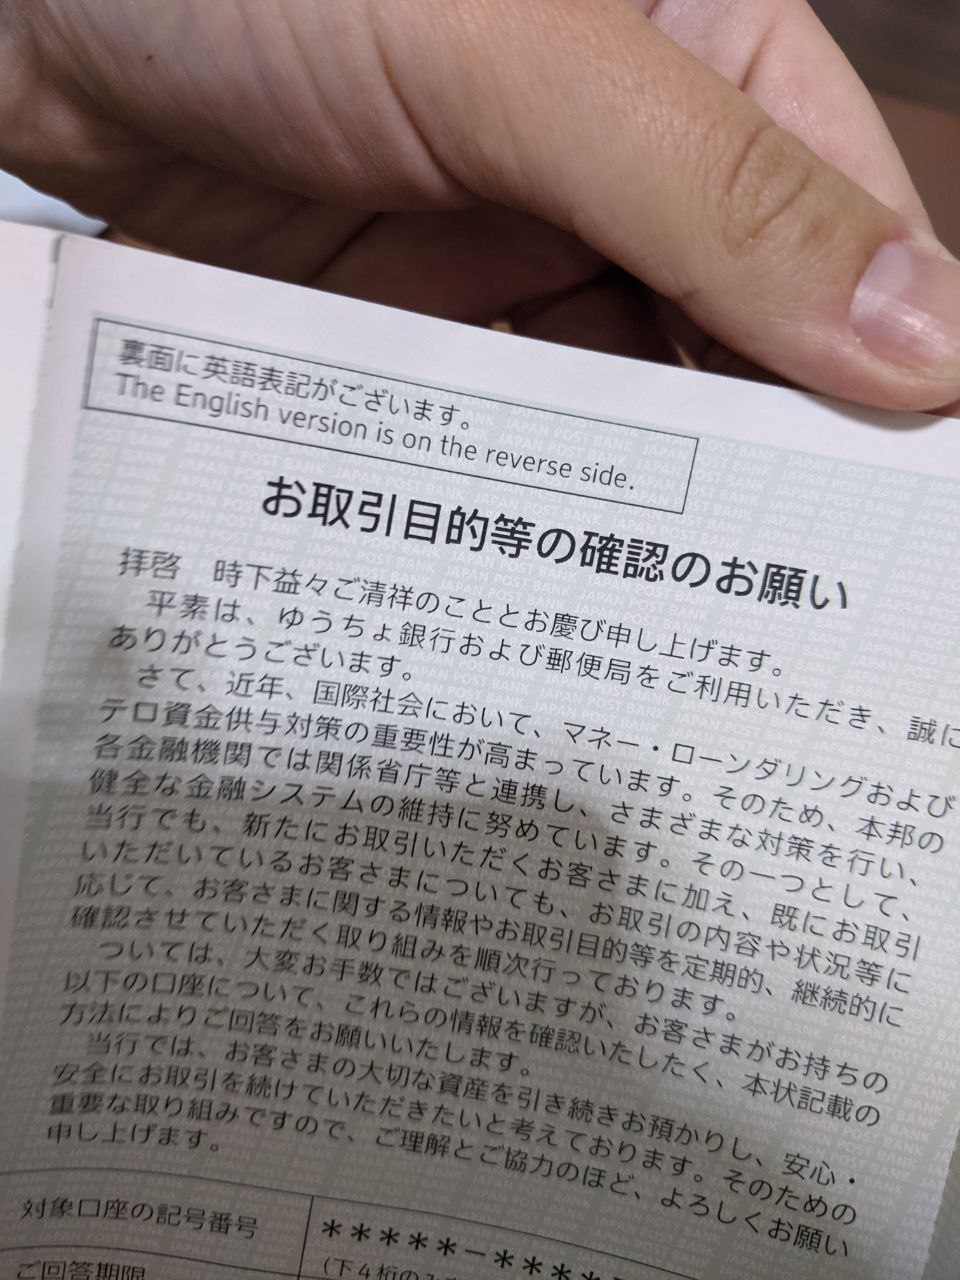 裏面に英語表記がございます。
The English version is on the reverse side.
お取引目的等の確認のお願い
拝啓　時下益々ご清祥のこととお慶び申し上げます。
平素は、ゆうちょ銀行および郵便局をご利用いただき、誠に
ありがとうございます。
さて、近年、国際社会において、マネー・ローンダリングおよび
テロ資金供与対策の重要性が高まっています。そのため、本邦の
各金融機関では関係省庁等と連携し、さまざまな対策を行い、
健全な金融システムの維持に努めています。その一つとして、
当行でも、新たにお取引いただくお客さまに加え、既にお取引
いただいているお客さまについても、お取引の内容や状況等に
応じて、お客さまに関する情報やお取引目的等を定期的、継続的に
確認させていただく取り組みを順次行っております。
ついては、大変お手数ではございますが、お客さまがお持ちの
以下の口座について、これらの情報を確認いたしたく、本状記載の
方法によりご回答をお願いいたします。
当行では、お客さまの大切な資産を引き続きお預かりし、安心・
安全にお取引を続けていただきたいと考えております。そのための
重要な取り組みですので、ご理解とご協力のほど、よろしくお願い
申し上げます。
対象口座の記号番号
＊＊＊＊＊－＊＊＊＊
（下４桁のみ
ご回答期限
JAPAN POST BANK